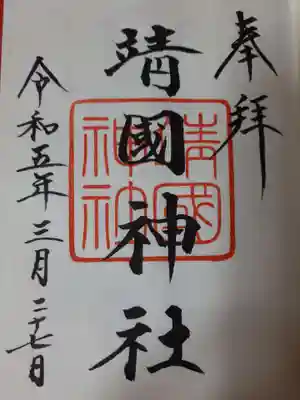 奉拝
靖國神社
靖國
神社
令和五年三月二十七日